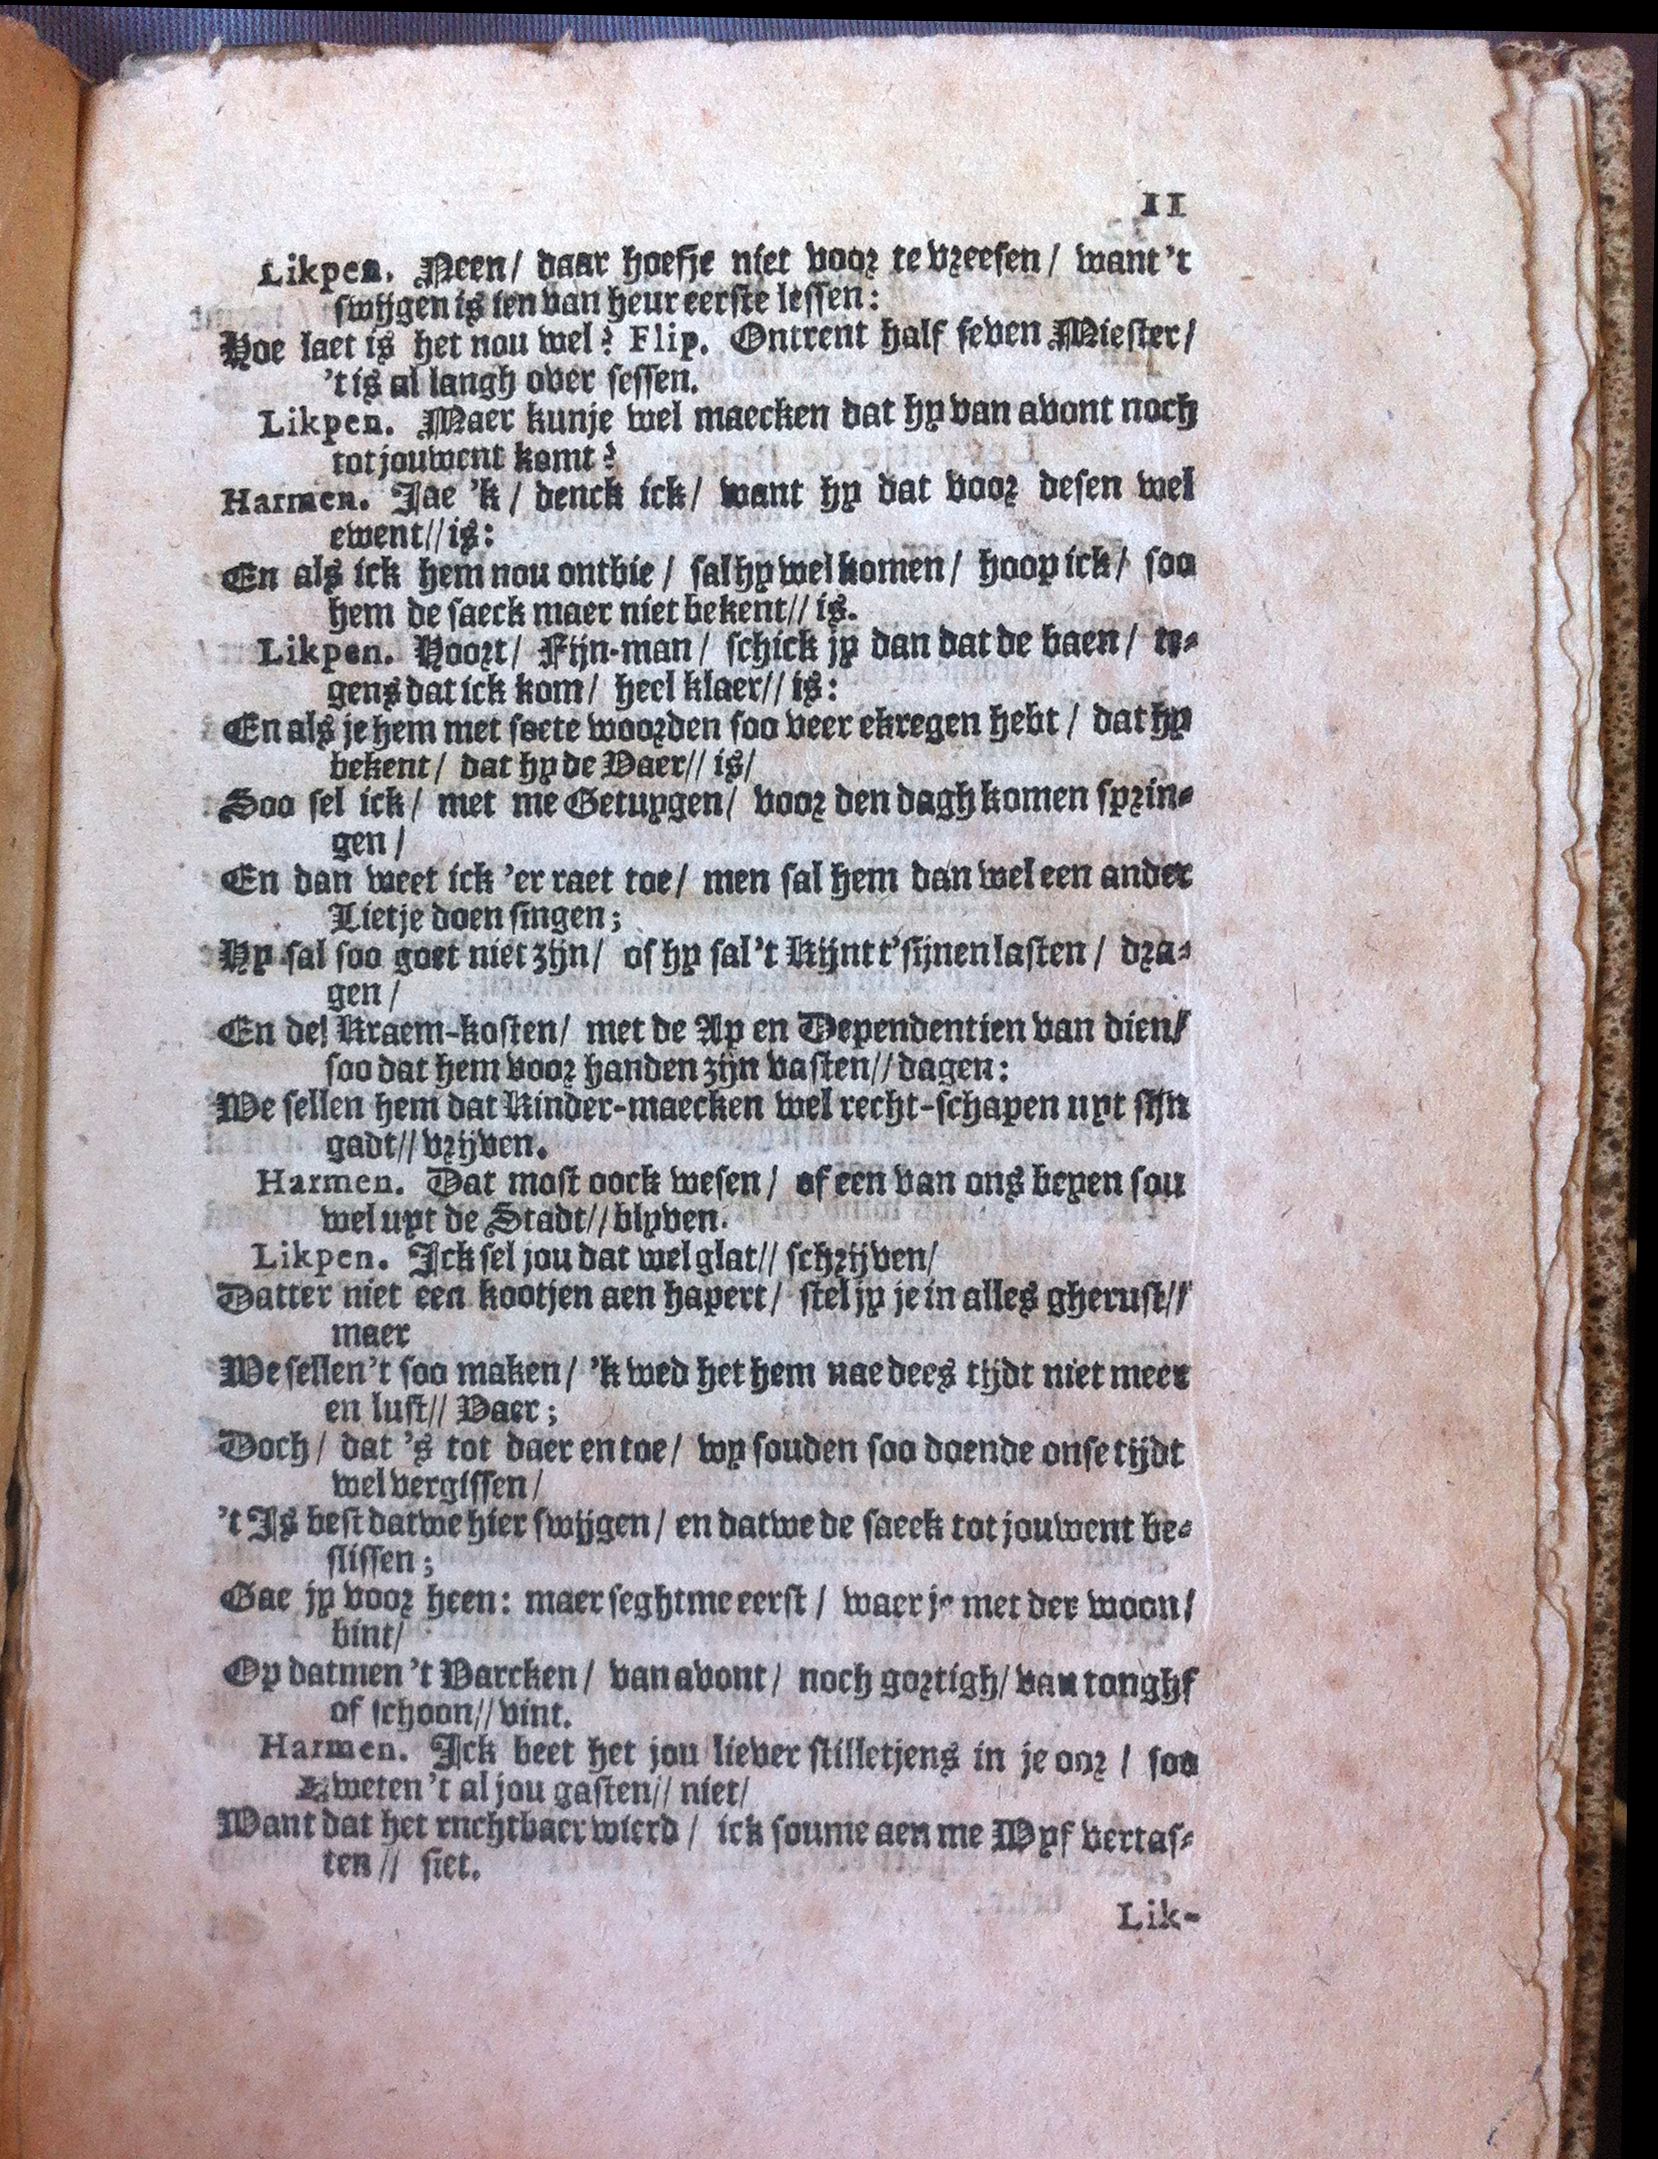 11
Likpen. Neen/ daar hoefje niet voor te vreesen/ want 't
swijgen is ien van heur eerste lessen:
Hoe laet is het nou wel? Flip. Ontrent half seven Miester/
't is al langh over sessen.
Likpen. Maer kunje wel maecken dat hy van avont noch
tot jouwent komt?
Harmen. Jae 'k/ denck ick/ want hy dat voor desen wel
ewent// is:
En als ick hem nou ontbie/ sal hy wel komen/ hoop ick/ soo
hem de saeck maer niet bekent// is.
Likpen. Hoort/ Fijn-man/ schick jy dan dat de baen/ te-
gens dat ick kom/ heel klaer// is:
En als je hem met soete woorden soo veer ekregen hebt/ dat hy
bekent/ dat hy de Vaer// is/
Soo sel ick/ met me Getuygen/ voor den dagh komen sprin-
gen/
En dan weet ick 'er raet toe/ men sal hem dan wel een ander
Lietje doen singen;
Hy sal soo goet niet zijn/ of hy sal 't Kijnt t'sijnen lasten/ dra-
gen/
En de! Kraem-kosten/ met de Ap en Dependentien van dien/
soo dat hem voor handen zijn vasten// dagen:
We sellen hem dat Kinder-maecken wel recht-schapen uyt sijn
gadt// vrijven.
Harmen. Dat most oock wesen/ of een van ons beyen sou
wel uyt de Stadt// blyven.
Likpen. Ick sel jou dat wel glat// schrijven/
Datter niet een kootjen aen hapert/ stel jy je in alles gherust//
maer
We sellen 't soo maken/ 'k wed het hem nae dees tijdt niet meer
en lust// Vaer;
Doch/ dat 's tot daer en toe/ wy souden soo doende onse tijdt
wel vergissen/
't Is best datwe hier swijgen/ en datwe de saeck tot jouwent be-
slissen;
Gae jy voor heen: maer seghtme eerst/ waer je met der woon/
bint/
Op datmen 't Varcken/ van avont/ noch gortigh/ van tongh
of schoon// vint.
Harmen. Ick beet het jou liever stilletjens in je oor/ soo
weten 't al jou gasten// niet/
Want dat het ruchtbaer wierd/ ick soume aen me Wyf vertas-
ten// siet.
Lik-